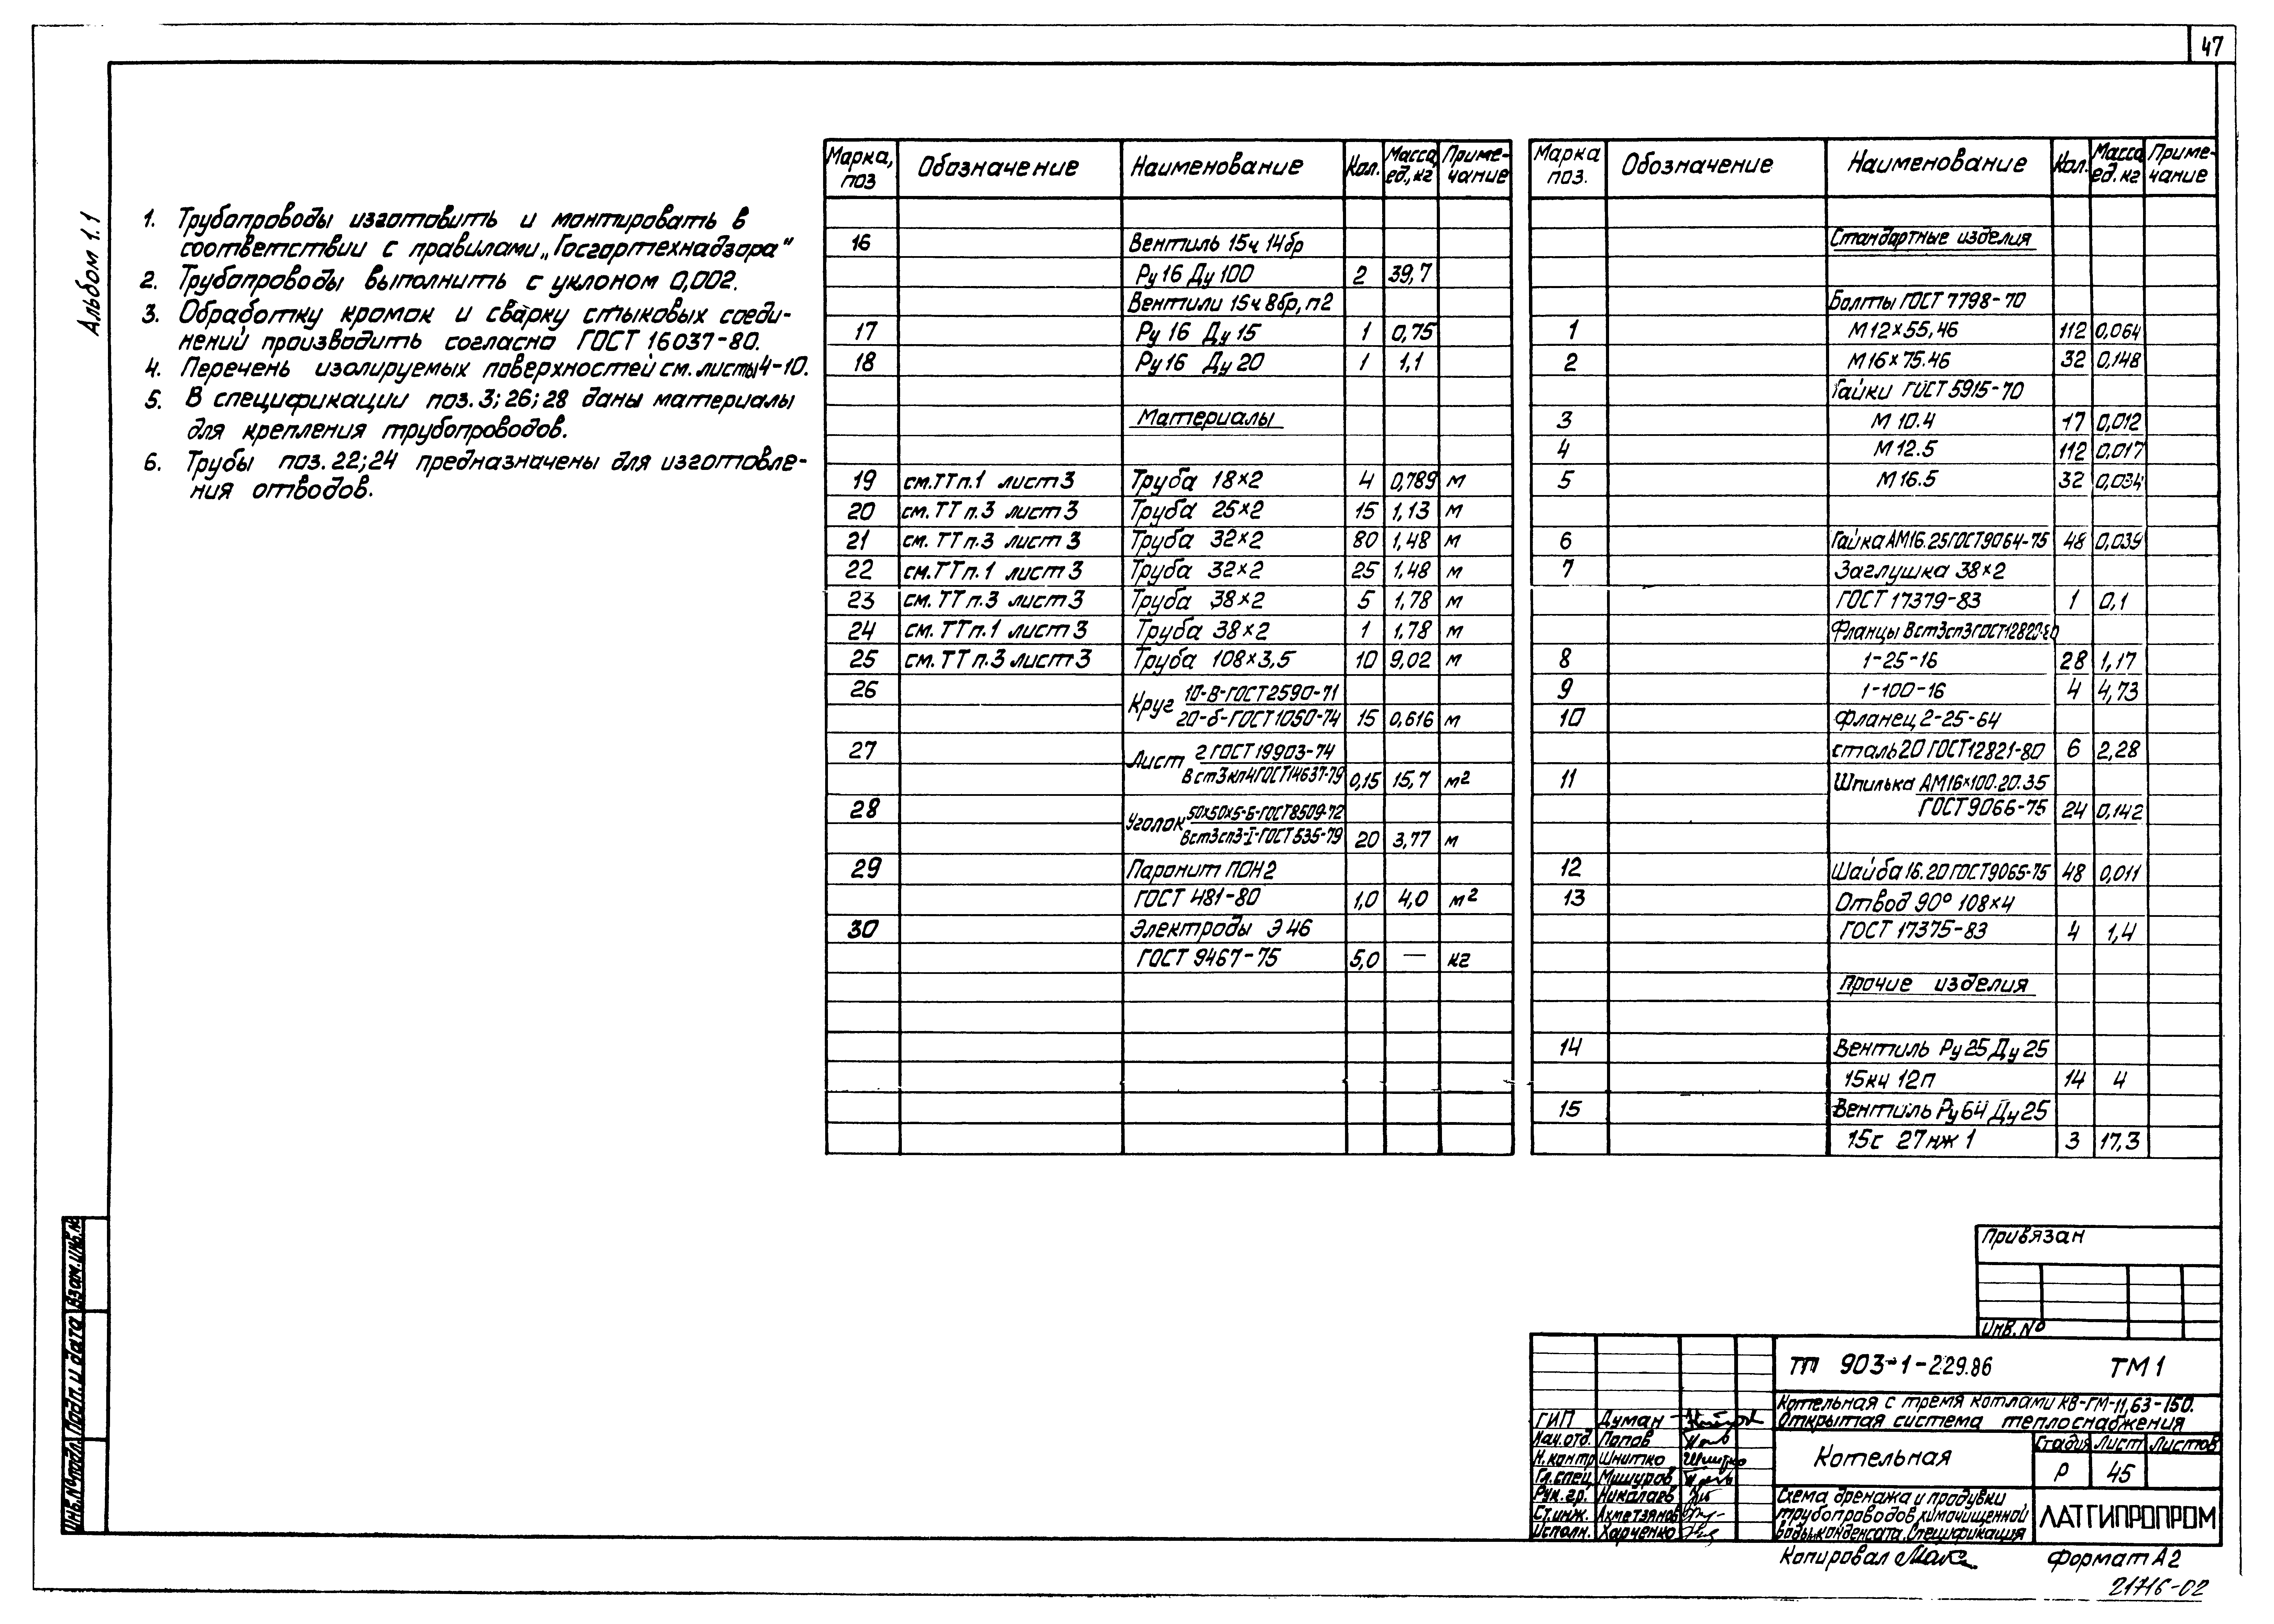 47
Альбом 1.1
1. Трубопроводы изготовить и монтировать в
соответствии с правилами „Госгортехнадзора"
2. Трубопроводы выполнить с уклоном 0,002.
3. Обработку кромок и сварку стыковых соеди-
нений производить согласно ГОСТ 16037-80.
4. Перечень изолируемых поверхностей см. листы 4-10.
5. В спецификации поз. 3; 26; 28 даны материалы
для крепления трубопроводов.
6. Трубы поз. 22; 24 предназначены для изготовле-
ния отводов.
Марка, поз Обозначение Наименование Кол. Масса ед., кг Приме-чание
16 Вентиль 15ч 14бр
Ру 16 Ду 100 2 39,7
Вентили 15ч 8бр, п2
17 Ру 16 Ду 15 1 0,75
18 Ру 16 Ду 20 1 1,1
Материалы
19 см. ТТ п.1 лист 3 Труба 18×2 4 0,789 м
20 см. ТТ п.3 лист 3 Труба 25×2 15 1,13 м
21 см. ТТ п.3 лист 3 Труба 32×2 80 1,48 м
22 см. ТТ п.1 лист 3 Труба 32×2 25 1,48 м
23 см. ТТ п.3 лист 3 Труба 38×2 5 1,78 м
24 см. ТТ п.1 лист 3 Труба 38×2 1 1,78 м
25 см. ТТ п.3 лист 3 Труба 108×3,5 10 9,02 м
26 Круг 10-В-ГОСТ 2590-71
20-б-ГОСТ 1050-74 15 0,616 м
27 Лист 2 ГОСТ 19903-74
Вст3кп4 ГОСТ 14637-79 0,15 15,7 м²
28 Уголок 50х50х5-Б-ГОСТ 8509-72
Вст3сп3-I-ГОСТ 535-79 20 3,77 м
29 Паронит ПОН2
ГОСТ 481-80 1,0 4,0 м²
30 Электроды Э 46
ГОСТ 9467-75 5,0 — кг
Марка поз. Обозначение Наименование Кол. Масса ед. кг Приме-чание
Стандартные изделия
Болты ГОСТ 7798-70
1 М 12×55,46 112 0,064
2 М 16×75.46 32 0,148
Гайки ГОСТ 5915-70
3 М 10.4 17 0,012
4 М 12.5 112 0,017
5 М 16.5 32 0,034
6 Гайка АМ16.25 ГОСТ 9064-75 48 0,039
7 Заглушка 38×2
ГОСТ 17379-83 1 0,1
Фланцы Вст3сп3 ГОСТ 12820-80
8 1-25-16 28 1,17
9 1-100-16 4 4,73
10 Фланец 2-25-64
сталь 20 ГОСТ 12821-80 6 2,28
11 Шпилька АМ16×100.20.35
ГОСТ 9066-75 24 0,142
12 Шайба 16.20 ГОСТ 9065-75 48 0,011
13 Отвод 90° 108×4
ГОСТ 17375-83 4 1,4
Прочие изделия
14 Вентиль Ру 25 Ду 25
15кч 12п 14 4
15 Вентиль Ру 64 Ду 25
15с 27нж 1 3 17,3
Привязан
Инв. №
ТП 903-1-229.86 ТМ 1
Котельная с тремя котлами КВ-ГМ-11,63-150.
Открытая система теплоснабжения
ГИП Думан
Нач. отд. Попов
Н. контр Шнитко
Гл. спец. Мишуров
Рук. гр. Николаев
Ст. инж. Ахметзянов
Исполн. Харченко
Котельная
Стадия Лист Листов
Р 45
Схема дренажа и продувки
трубопроводов химочищенной
воды, конденсата. Спецификация
ЛАТГИПРОПРОМ
Копировал
Формат А2
21716-02
Инв. № подл. Подп. и дата Взам. инв. №